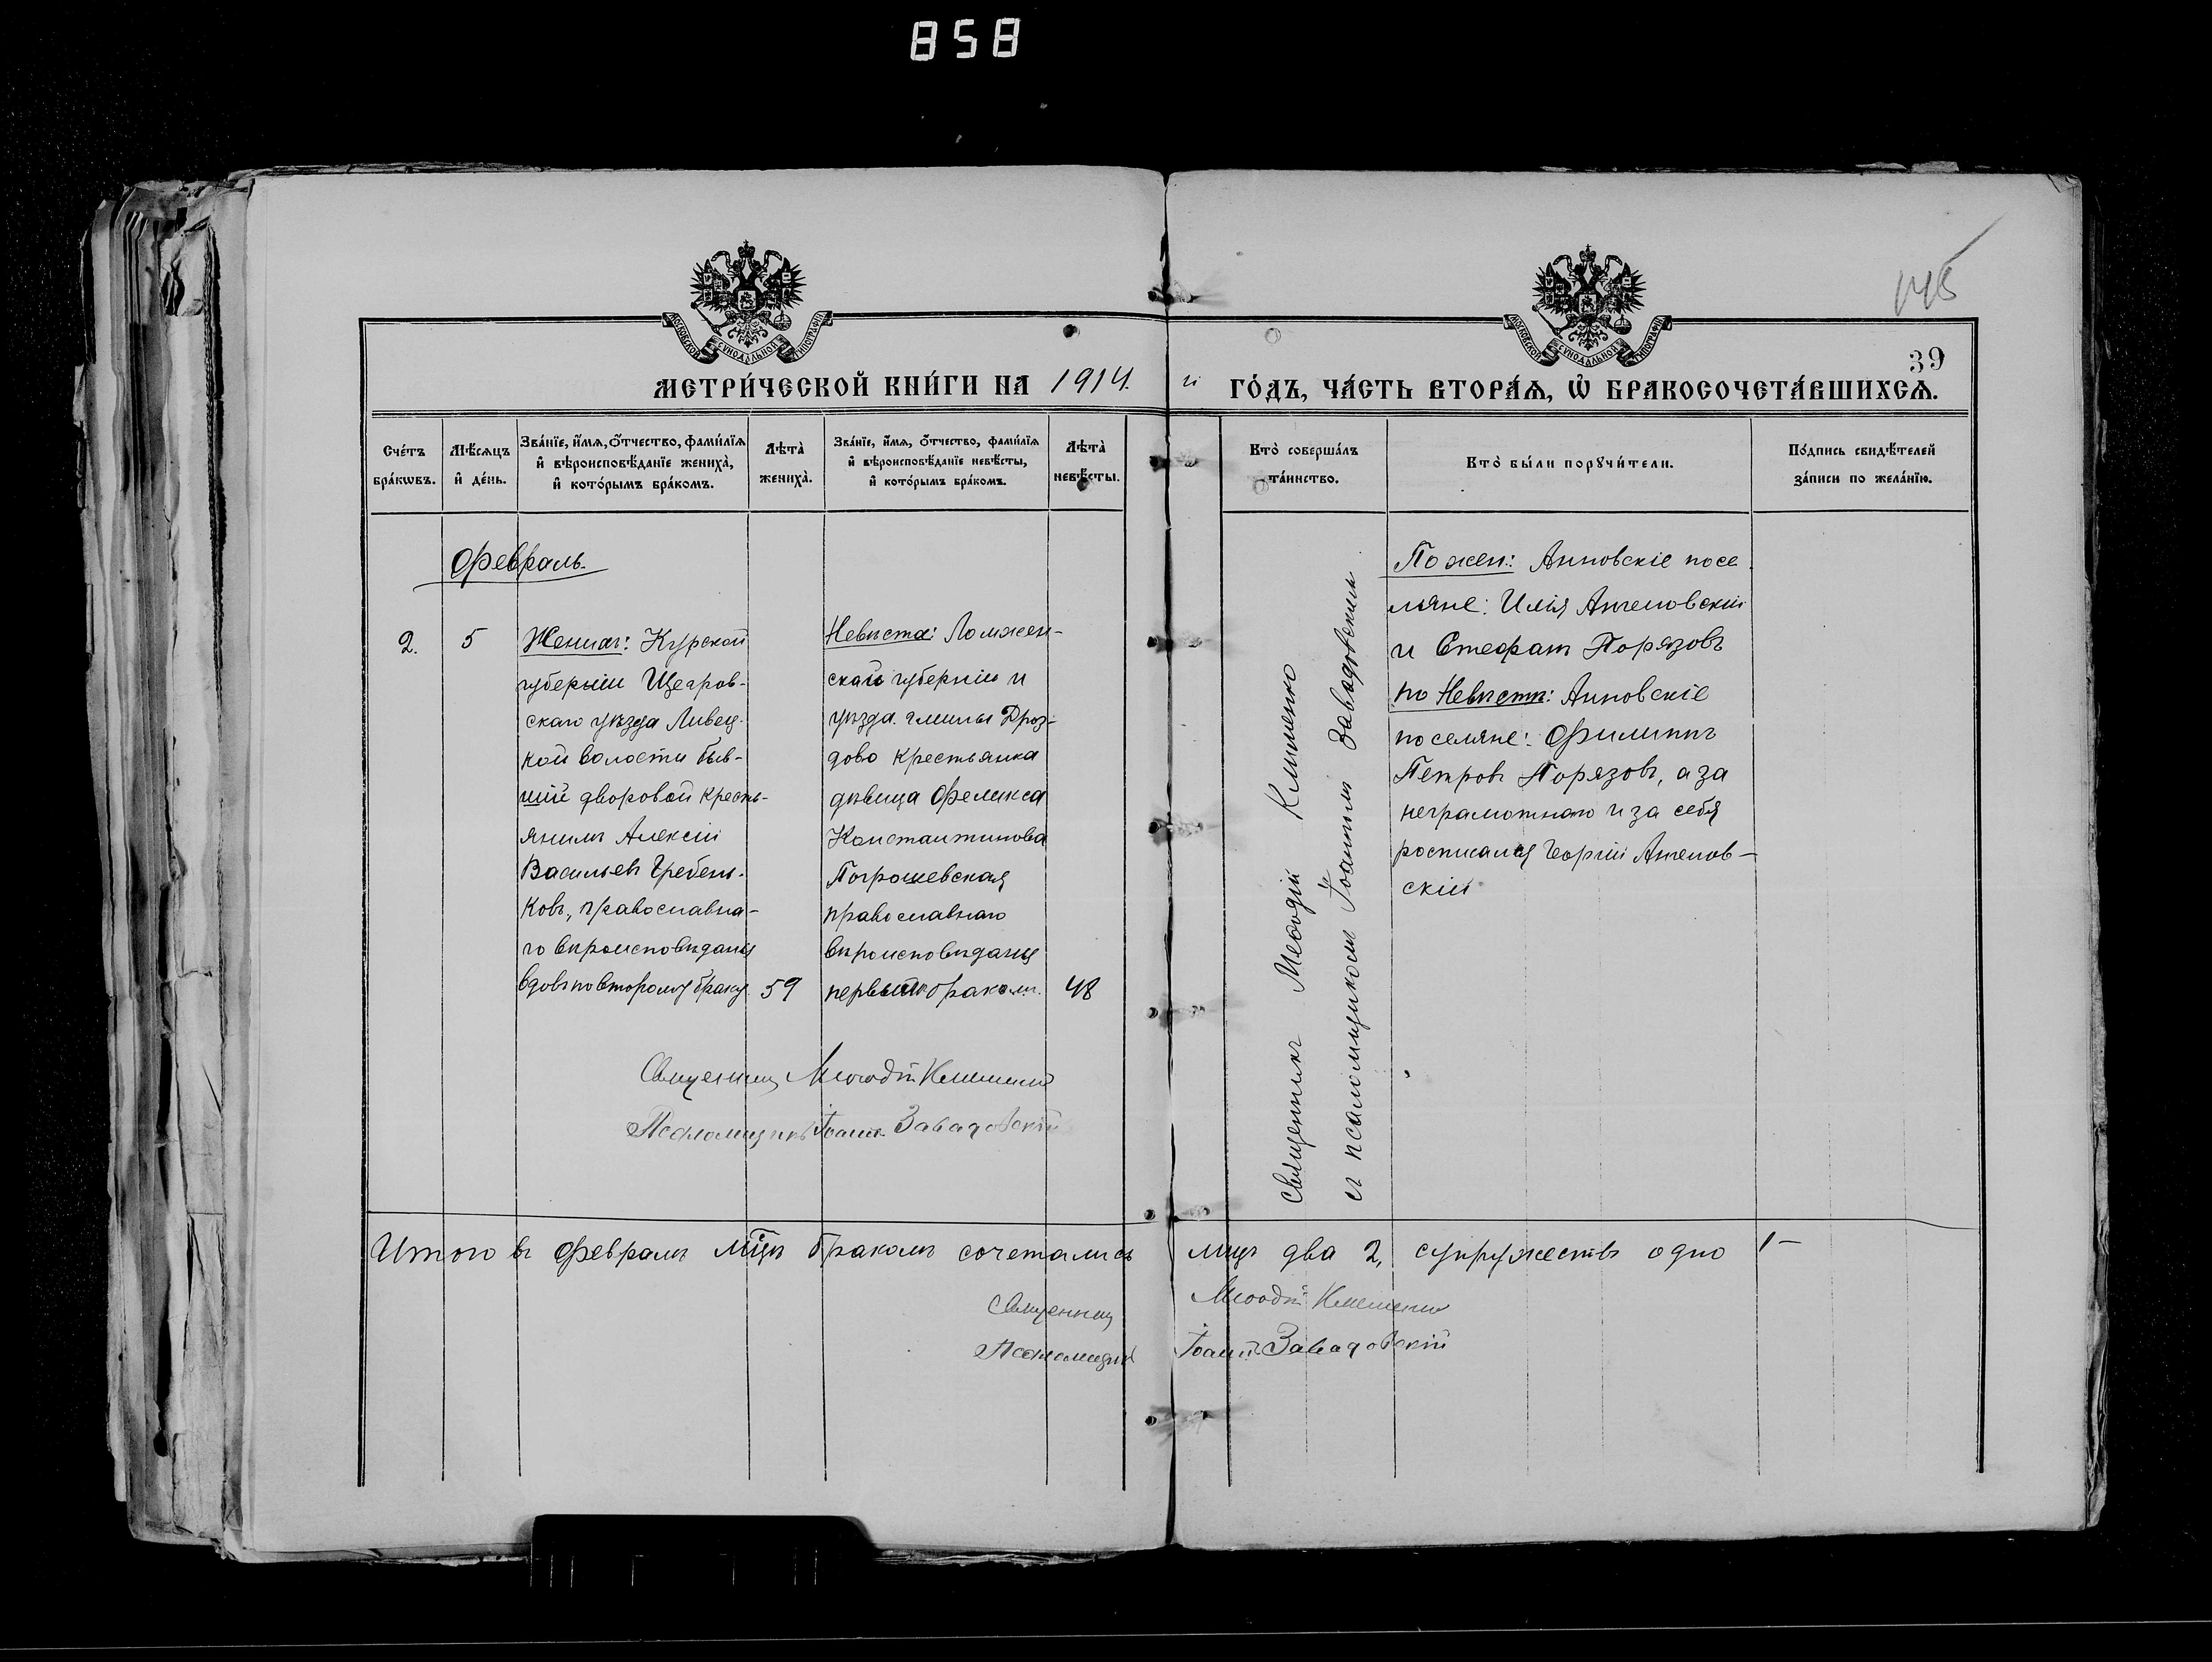 858
145
39
МОСКОВСКОЙ СѴНОДАЛЬНОЙ ТИПОГРАФІИ
МОСКОВСКОЙ СѴНОДАЛЬНОЙ ТИПОГРАФІИ
МЕТРИ́ЧЕСКОЙ КНИ́ГИ НА 1914.
й ГО́ДЪ, ЧА́СТЬ ВТОРА́Ѧ, Ѡ҆ БРАКОСОЧЕТА́ВШИХСѦ.
Сче́тъ бра́кѡвъ.
Мѣ́сѧцъ и҆ де́нь.
Зва́нїе, и҆́мѧ, ѻ҆́тчество, фами́лїѧ
и҆ вѣроисповѣ́данїе жениха̀,
и҆ кото́рымъ бра́комъ.
Лѣта̀ жениха̀.
Зва́нїе, и҆́мѧ, ѻ҆́тчество, фами́лїѧ
и҆ вѣроисповѣ́данїе невѣ́сты,
и҆ кото́рымъ бра́комъ.
Лѣта̀ невѣ́сты.
Кто̀ соверша́лъ та́инство.
Кто̀ бы́ли порꙋчи́тели.
По́дпись свидѣ́телей
за́писи по жела́нїю.
Февраль.
2.
5
Женихъ: Курской
губерніи Щегров-
скаго уѣзда Ливец-
кой волости быв-
шій дворовой кресть-
янинъ Алексій
Васильевъ Гребень-
ковъ, православна-
го вѣроисповѣданія
вдовъ по второму браку
59
Невѣста: Ломжен-
ской губерніи и
уѣзда гмины Дроз-
дово крестьянка
дѣвица Феликса
Константинова
Погрошевская
православнаго
вѣроисповѣданія
первымъ бракомъ.
48
Священникъ Меѳодій Клименко
Псаломщикъ Іоаннъ Завадовскій
Священникъ Меѳодій Клименко
съ псаломщикомъ Іоанномъ Завадовскимъ
По жен.: Анновскіе посе
ляне: Илія Ангеловскій
и Стефанъ Порязовъ
по Невѣстѣ: Анновскіе
поселяне: Филиппъ
Петровъ Порязовъ, а за
неграмотнаго и за себя
росписался Георгій Ангелов-
скій
Итого въ февралѣ мцѣ бракомъ сочетались лицъ два 2, супружествъ одно 1-
Священникъ Меѳодій Клименко
Псаломщикъ Іоаннъ Завадовскій